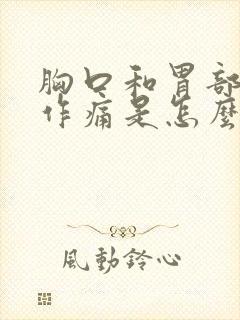 胸口和胃部
作痛是怎麼
風動鈴心